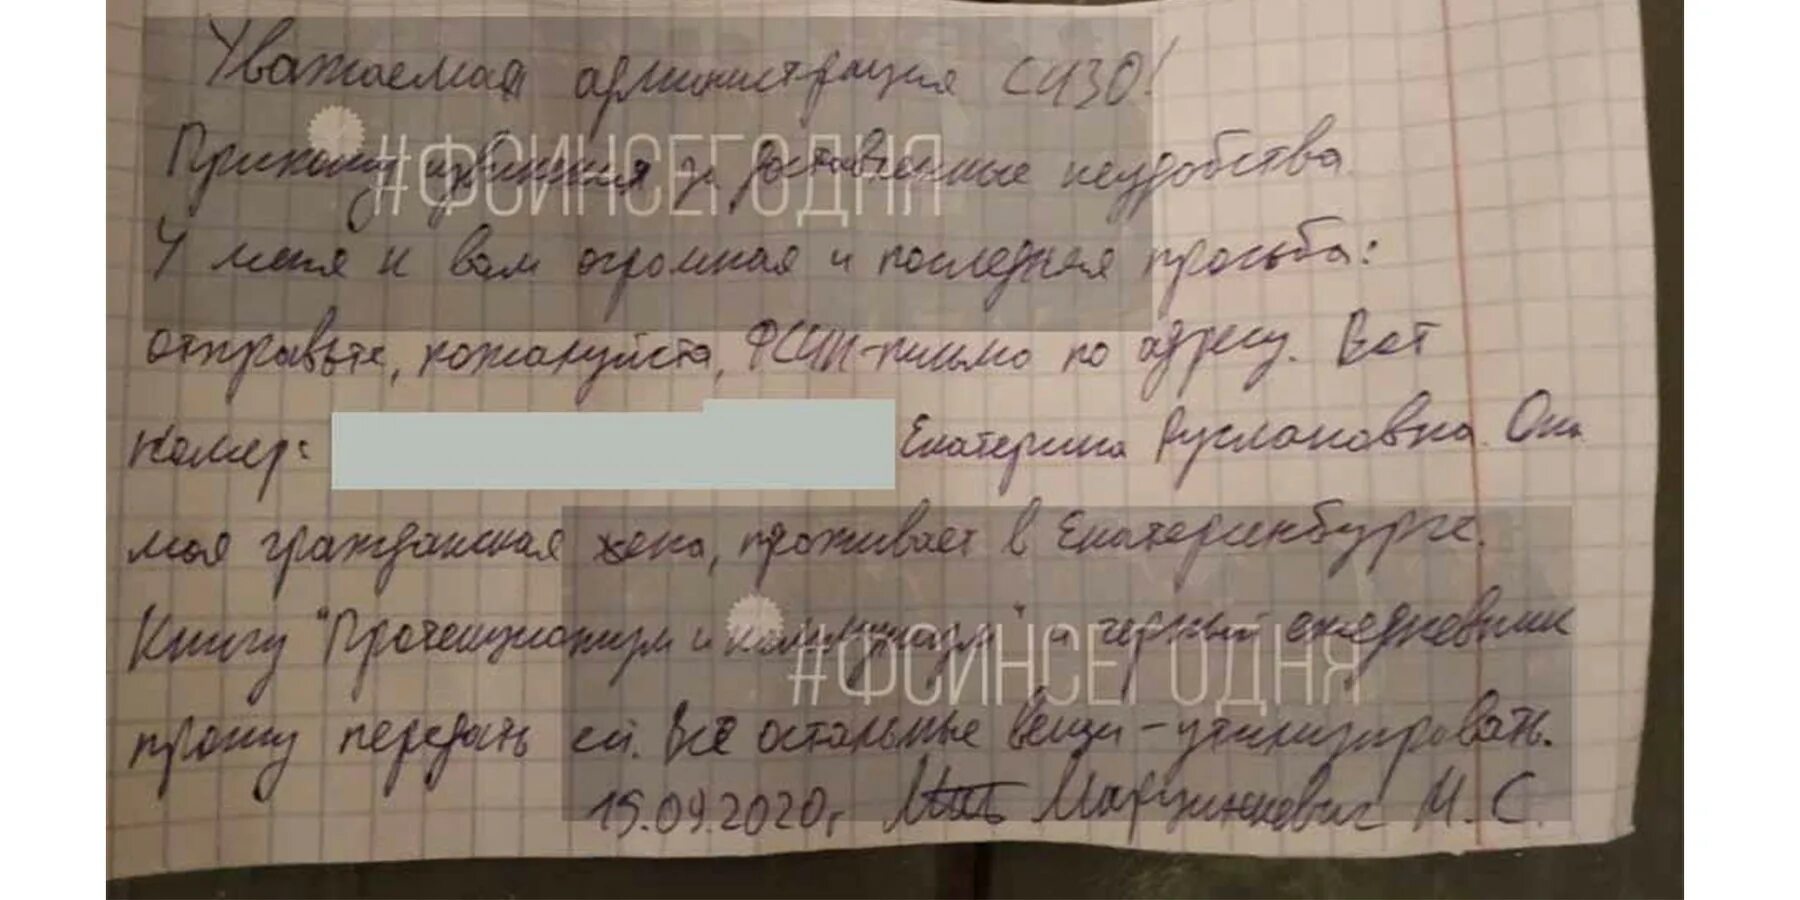 Уважаемая администрация СИЗО!
#ФСИНСЕГОДНЯ
Приношу извинения за доставленные неудобства.
У меня к вам огромная и последняя просьба:
отправьте, пожалуйста, ФСИН-письмо по адресу. Вот
номер: Екатерина Руслановна. Она
моя гражданская жена, проживает в Екатеринбурге.
Книгу "Протекционизм и коммунизм" и черный ежедневник
#ФСИНСЕГОДНЯ
прошу передать ей. Всё остальные вещи - утилизировать.
15.09.2020г Марцинкевич М.С.